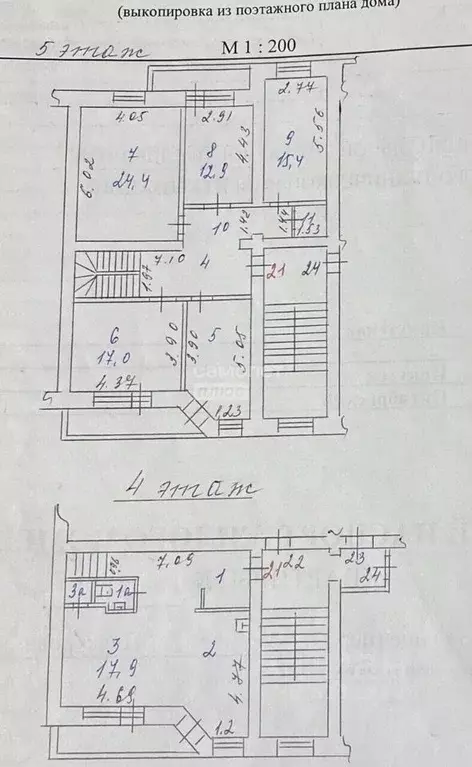 (выкопировка из поэтажного плана дома)
5 этаж
М 1 : 200
4.05
2.91
2.77
6.02
7
24,4
8
12,9
4.43
9
15,4
5.56
10
1.42
1.44
11
1.53
7.10
4
1.97
21
24
6
17,0
4.37
3.90
3.90
5
5.05
1.23
4 этаж
7.09
1
21
22
23
24
3а
1а
3
17,9
4.69
2
4.77
1.2